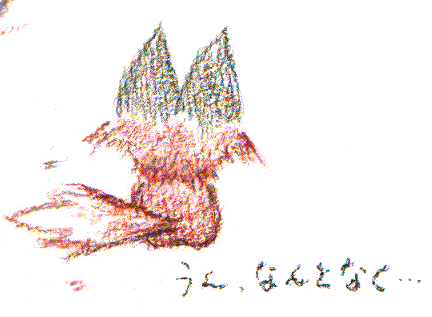 うん、なんとなく…